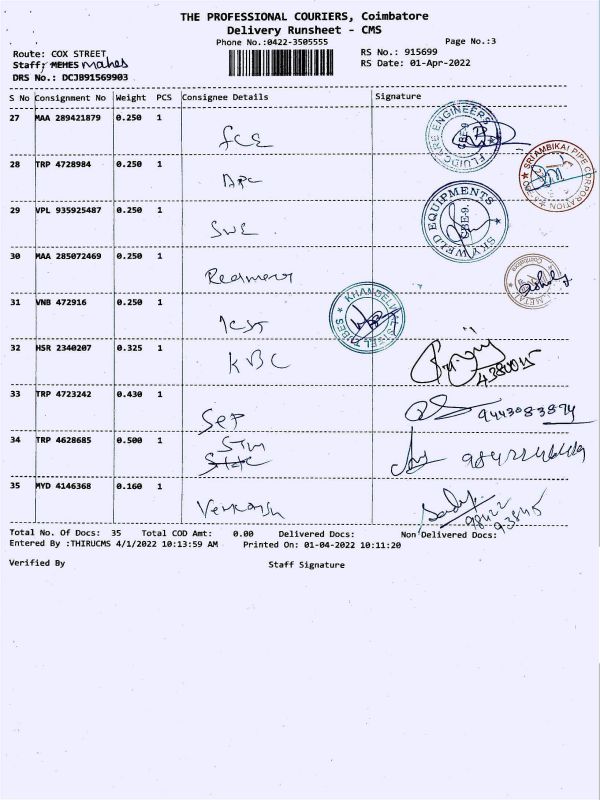 THE PROFESSIONAL COURIERS, Coimbatore
Delivery Runsheet - CMS
Phone No.:0422-3505555
Page No.:3
Route: COX STREET
RS No.: 915699
Staff: MEHES mahes
RS Date: 01-Apr-2022
DRS No.: DCJB91569903
S No Consignment No Weight PCS Consignee Details Signature
27 MAA 289421879 0.250 1 FCE
FLUIDCARE ENGINEERS
28 TRP 4728984 0.250 1 APC
SRI AMBIKAI PIPE CORPORATION
29 VPL 935925487 0.250 1 SWE
SKYWELD EQUIPMENTS CBE-9.
30 MAA 285072469 0.250 1
METAL
31 VNB 472916 0.250 1
STEEL TUBES
32 HSR 2340207 0.325 1 KBC
4380015
33 TRP 4723242 0.430 1 SEP
9443083894
34 TRP 4628685 0.500 1 STM
State
35 MYD 4146368 0.160 1 Venkatesh
98422
93845
Total No. Of Docs: 35 Total COD Amt: 0.00 Delivered Docs: Non Delivered Docs:
Entered By :THIRUCMS 4/1/2022 10:13:59 AM Printed On: 01-04-2022 10:11:20
Verified By Staff Signature